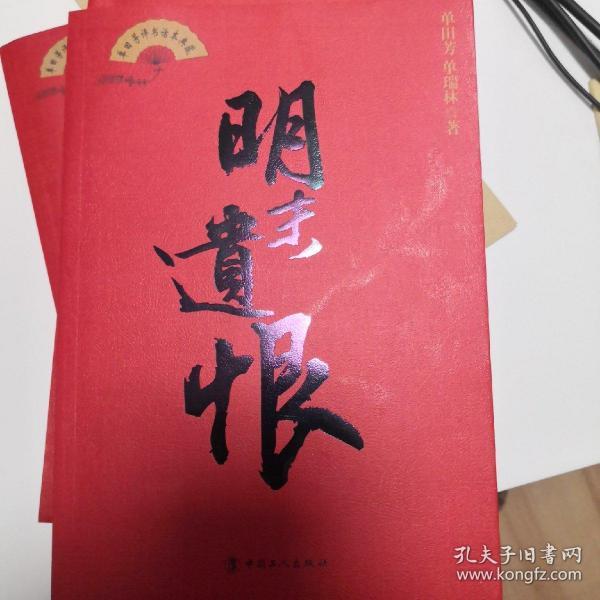 单田芳评书话本典藏
单田芳 单瑞林 著
明末遺恨
中国工人出版社
孔夫子旧书网
www.kongfz.com